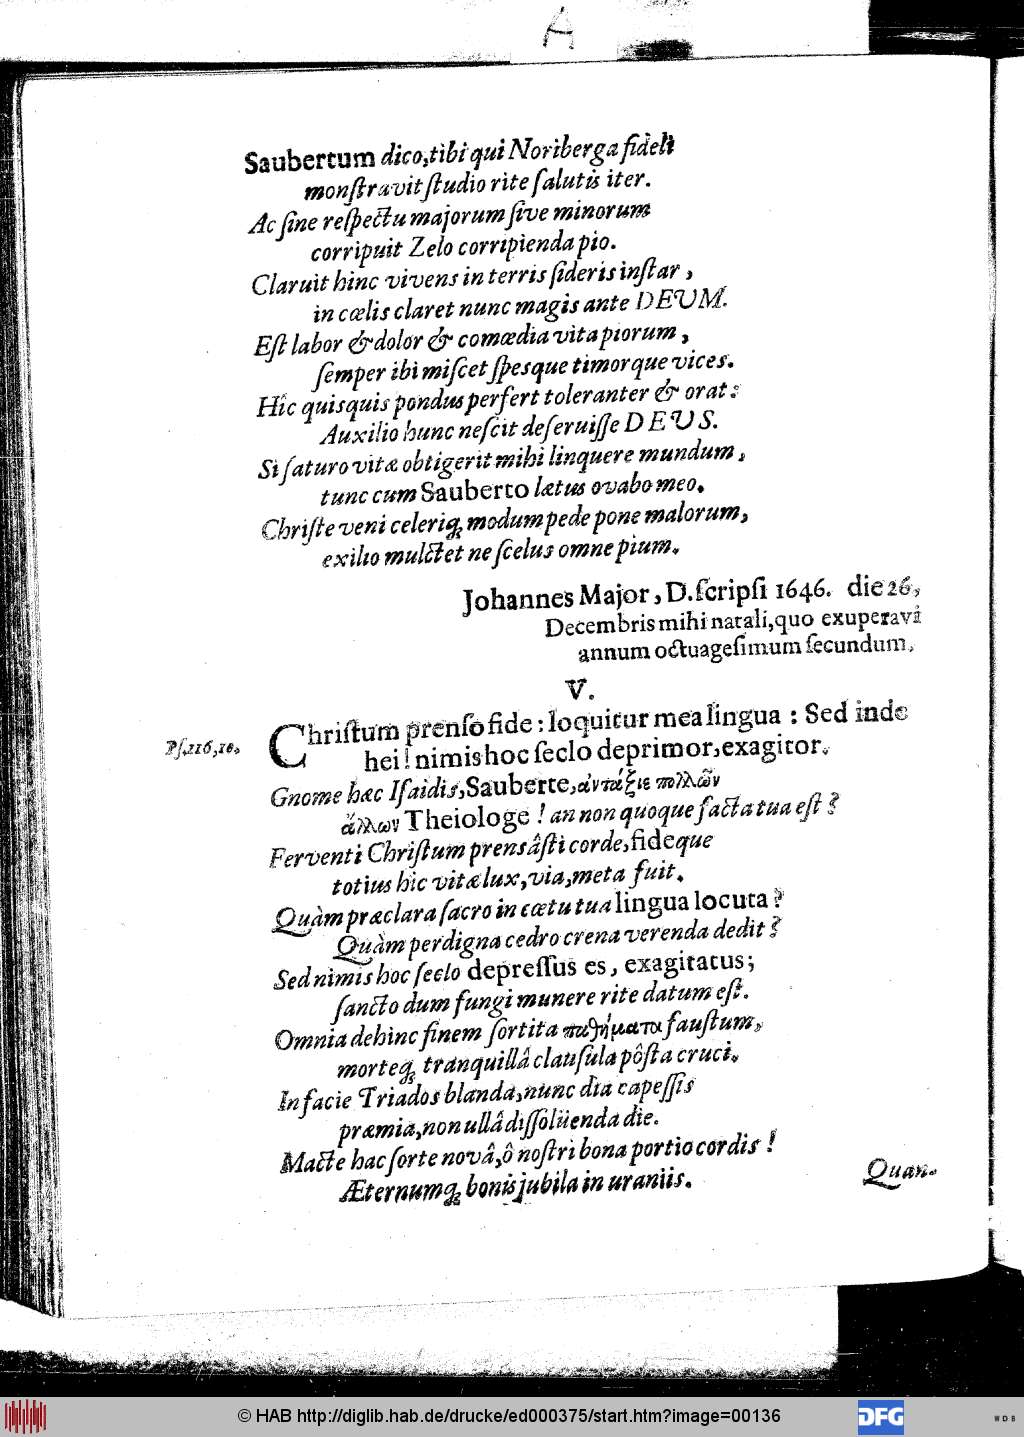 A
Saubertum dico, tibi qui Noriberga fideli
monſtravit ſtudio rite ſalutis iter.
Ac ſine reſpectu majorum ſive minorum
corripuit Zelo corripienda pio.
Claruit hinc vivens in terris ſideris inſtar,
in cœlis claret nunc magis ante DEUM.
Eſt labor & dolor & comœdia vita piorum,
ſemper ibi miſcet ſpesque timorque vices.
Hîc quisquis pondus perfert toleranter & orat:
Auxilio hunc neſcit deſeruiſſe DEUS.
Si ſaturo vitæ obtigerit mihi linquere mundum,
tunc cum Sauberto lætus ovabo meo.
Chriſte veni celeriq; modum pede pone malorum,
exilio mulctet ne ſcelus omne pium.
Johannes Major, D. ſcripſi 1646. die 26,
Decembris mihi natali, quo exuperavi
annum octuageſimum ſecundum.
V.
Pſ. 116, 10.
Chriſtum prenſo fide: loquitur mea lingua: Sed inde
hei! nimis hoc ſeclo deprimor, exagitor.
Gnome hæc Iſaidis, Sauberte, ἀντάξιε πολλῶν
ἄλλων Theiologe! an non quoque facta tua eſt?
Ferventi Chriſtum prensâſti corde, fideque
totius hic vitæ lux, via, meta fuit.
Quàm præclara ſacro in cœtu tua lingua locuta?
Quàm perdigna cedro crena verenda dedit?
Sed nimis hoc ſeclo depreſſus es, exagitatus;
ſancto dum fungi munere rite datum eſt.
Omnia dehinc finem ſortita παθήματα fauſtum,
morteq; tranquillâ clauſula pôſta cruci.
In facie Triados blanda, nunc dia capeſſis
præmia, non ullâ diſſolüenda die.
Macte hac ſorte novâ, ô noſtri bona portio cordis!
Æternumq; bonis jubila in uraniis.
Quan-
© HAB http://diglib.hab.de/drucke/ed000375/start.htm?image=00136
DFG
WDB